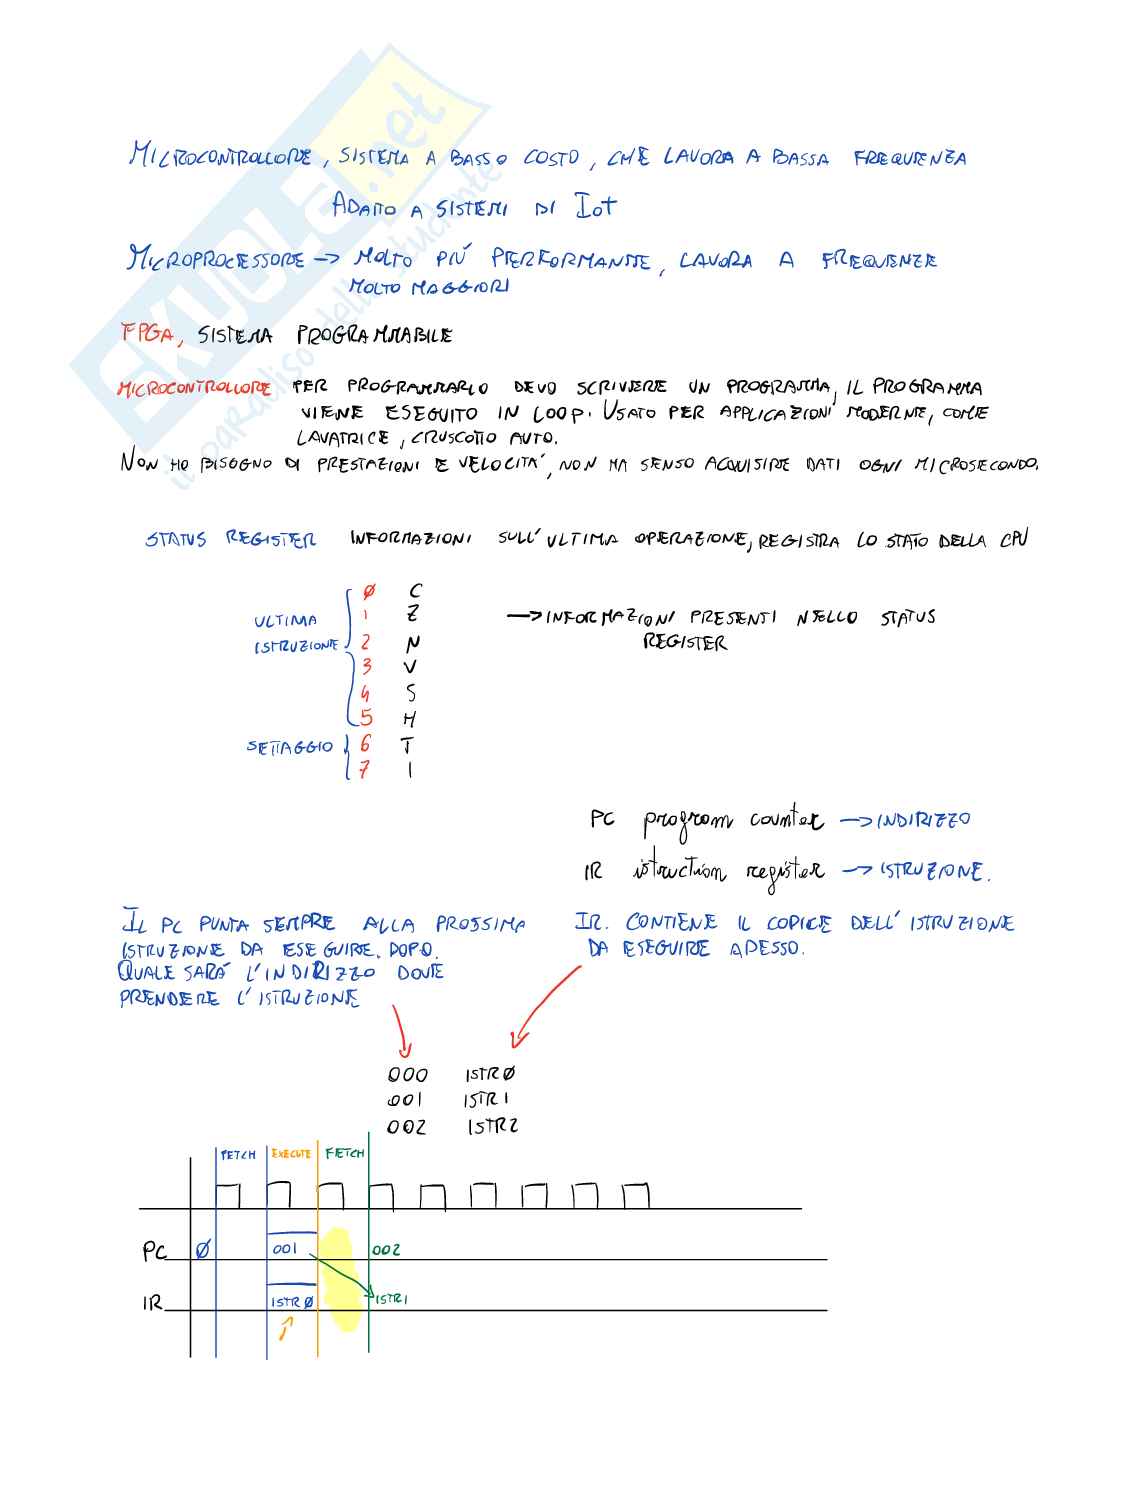 MICROCONTROLLORE, SISTEMA A BASSO COSTO, CHE LAVORA A BASSA FREQUENZA
ADATTO A SISTEMI DI IoT
MICROPROCESSORE -> MOLTO PIÚ PERFORMANTE, LAVORA A FREQUENZE
MOLTO MAGGIORI
FPGA, SISTEMA PROGRAMMABILE
MICROCONTROLLORE PER PROGRAMMARLO DEVO SCRIVERE UN PROGRAMMA, IL PROGRAMMA
VIENE ESEGUITO IN LOOP. USATO PER APPLICAZIONI MODERNE, COME
LAVATRICE, CRUSCOTTO AUTO.
NON HO BISOGNO DI PRESTAZIONI E VELOCITA', NON HA SENSO ACQUISIRE DATI OGNI MICROSECONDO.
SKUOLA.net
il paradiso dello studente
STATUS REGISTER INFORMAZIONI SULL'ULTIMA OPERAZIONE, REGISTRA LO STATO DELLA CPU
Ø C
ULTIMA 1 Z -> INFORMAZIONI PRESENTI NELLO STATUS
ISTRUZIONE 2 N REGISTER
3 V
4 S
5 H
SETTAGGIO 6 T
7 I
PC program counter -> INDIRIZZO
IR istruction register -> ISTRUZIONE.
IL PC PUNTA SEMPRE ALLA PROSSIMA
ISTRUZIONE DA ESEGUIRE. DOPO.
QUALE SARÁ L'INDIRIZZO DOVE
PRENDERE L'ISTRUZIONE
IR. CONTIENE IL CODICE DELL'ISTRUZIONE
DA ESEGUIRE ADESSO.
000 ISTRØ
001 ISTR1
002 ISTR2
FETCH EXECUTE FETCH
PC Ø 001 002
IR ISTRØ ISTR1